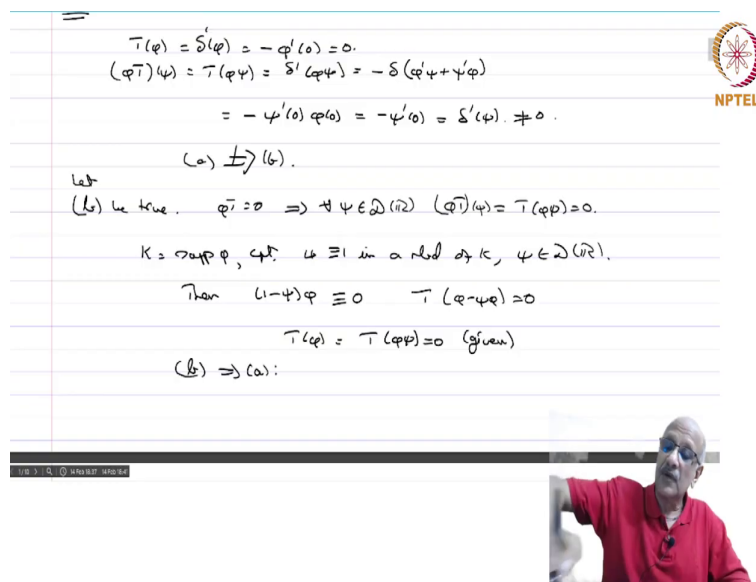 T(φ) = δ'(φ) = -φ'(0) = 0.
(φT)(ψ) = T(φψ) = δ'(φψ) = -δ(φ'ψ+ψ'φ)
NPTEL
= -ψ'(0) φ(0) = -ψ'(0) = δ'(ψ). ≠ 0.
(a) ⇏ (b).
Let
(b) be true. φT = 0 ⇒ ∀ ψ ∈ D(ℝ) (φT)(ψ) = T(φψ) = 0.
K = supp φ, cpt. ψ ≡ 1 in a nbd of K, ψ ∈ D(ℝ).
Then (1-ψ)φ ≡ 0 T(φ-ψφ) = 0
T(φ) = T(φψ) = 0 (given)
(b) ⇒ (a):
1/10 14 Feb 16:37 14 Feb 16:41